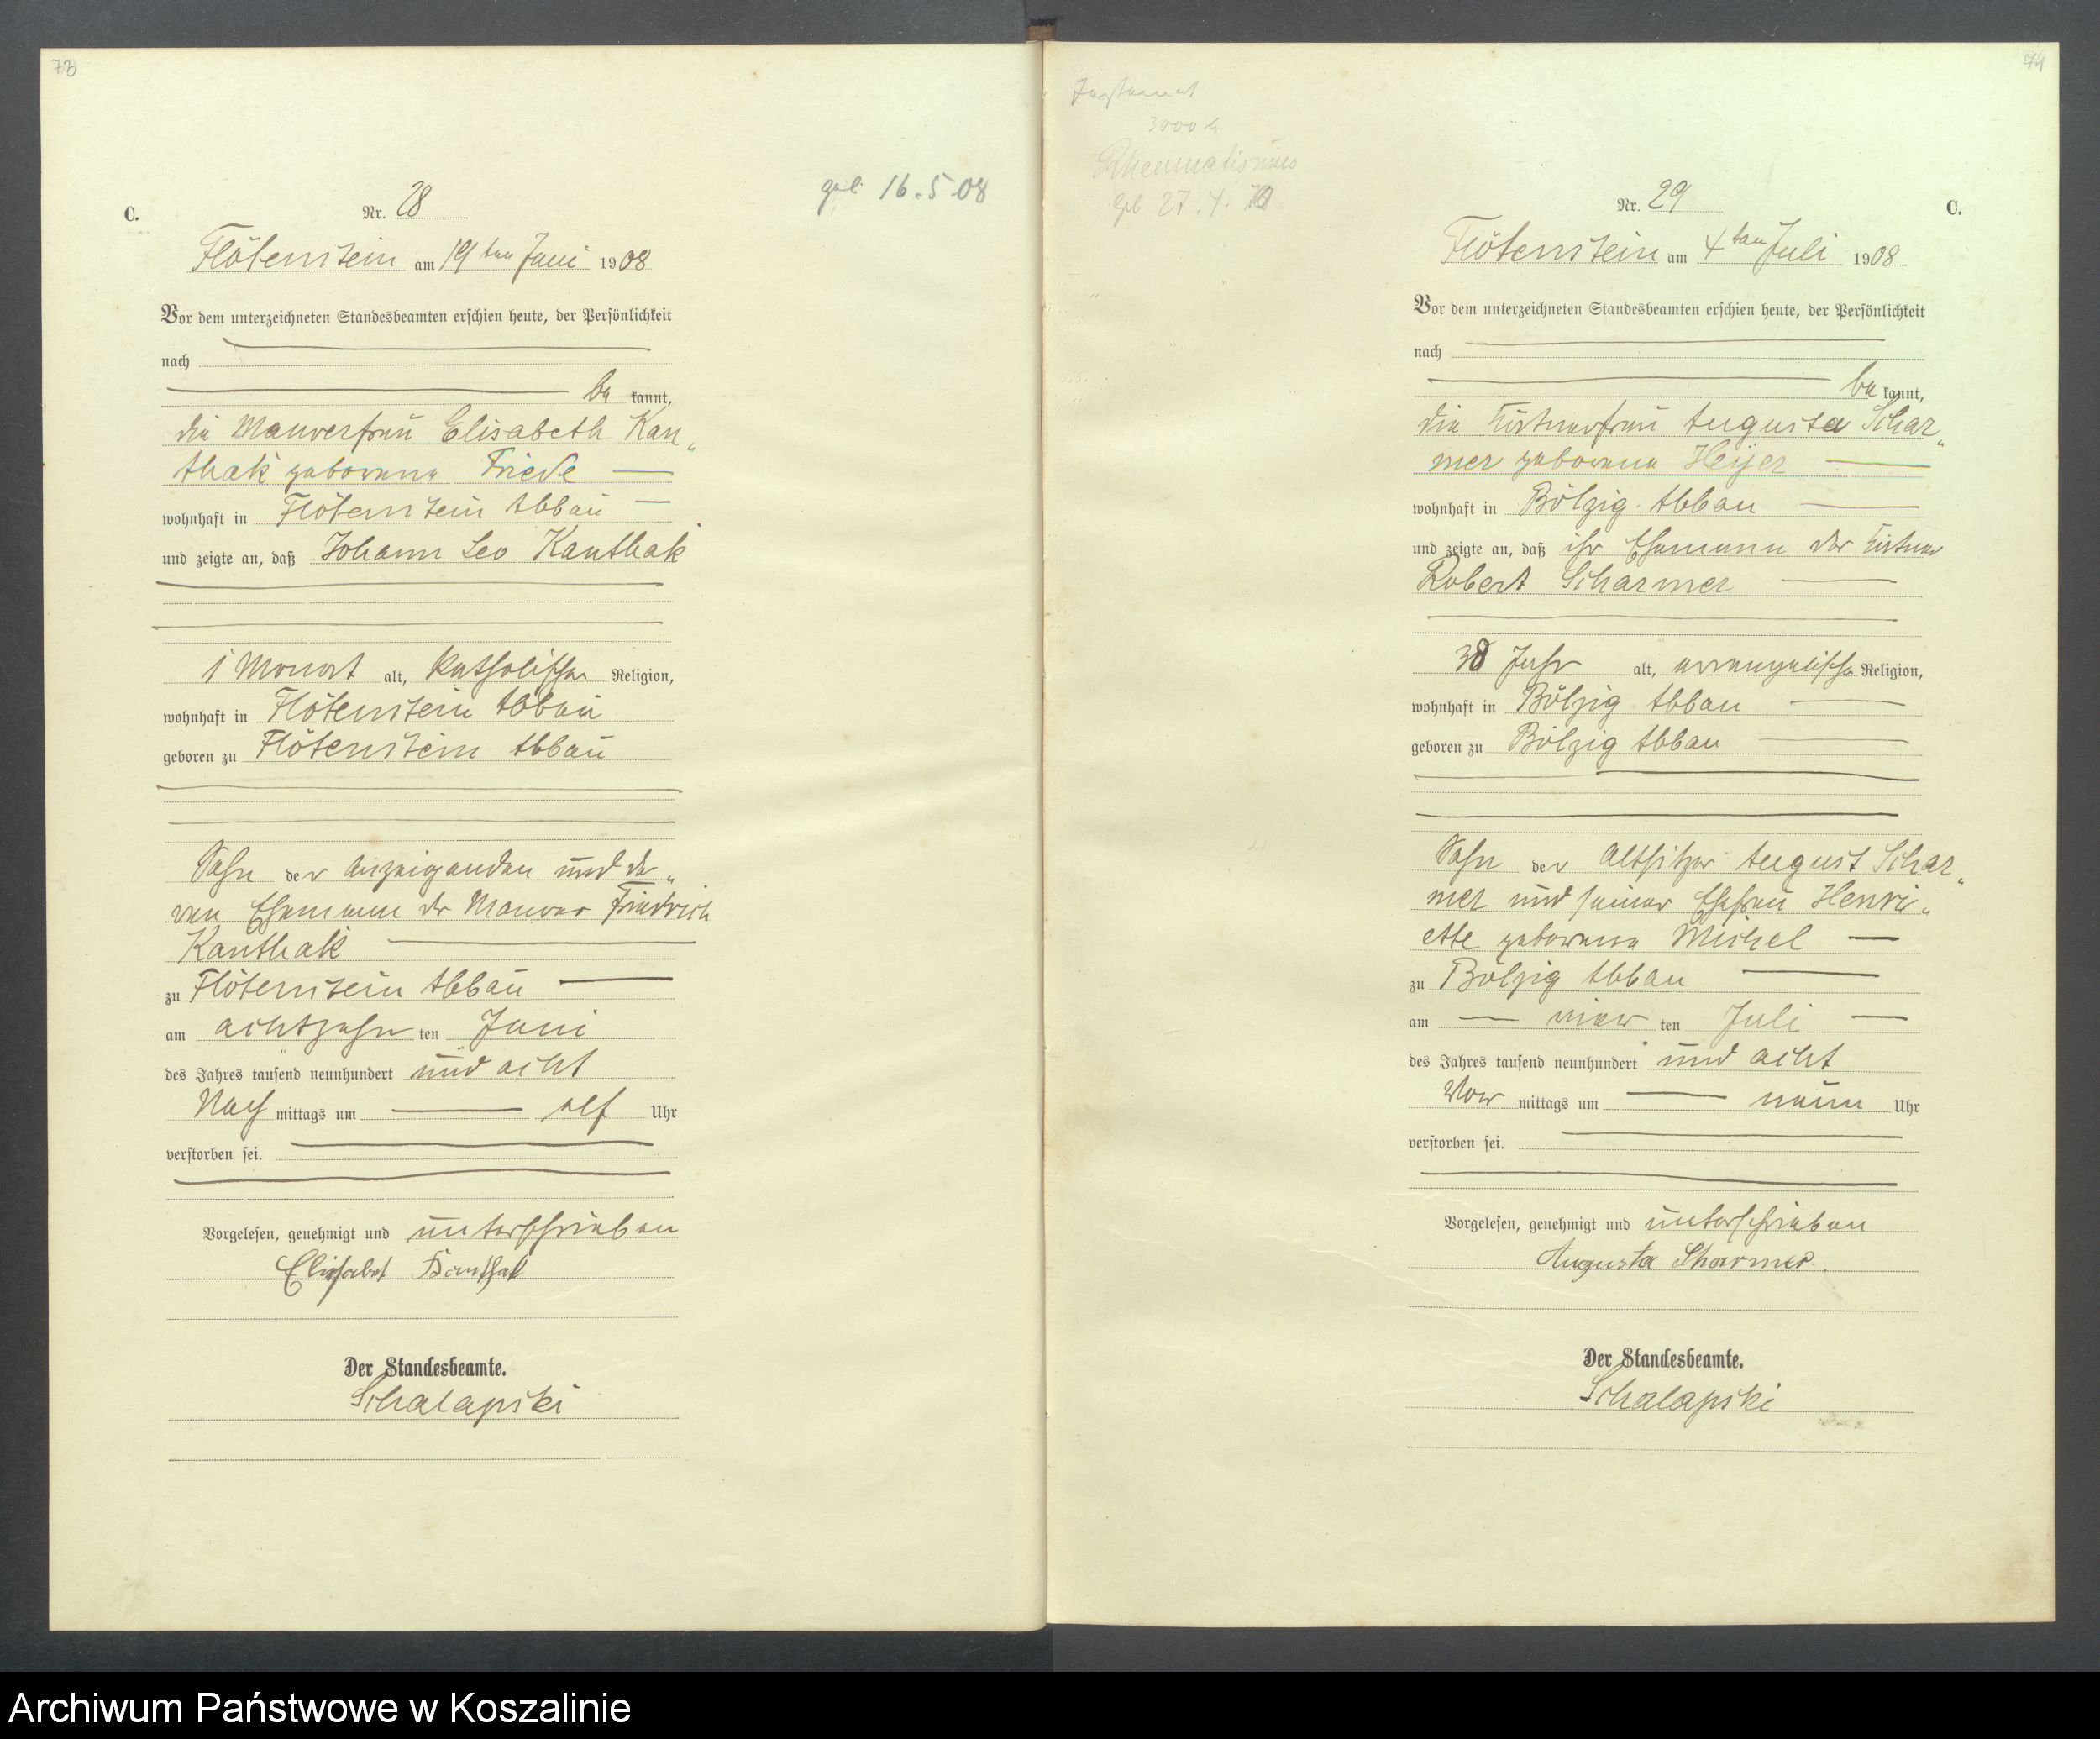 73
C.
Nr. 28
geb. 16.5.08
Flötenstein am 19ten Juni 1908
Vor dem unterzeichneten Standesbeamten erschien heute, der Persönlichkeit
nach
be kannt,
die Maurerfrau Elisabeth Kan„
thak geborene Friede
wohnhaft in Flötenstein Abbau
und zeigte an, daß Johann Leo Kanthak
1 Monat alt, katholischer Religion,
wohnhaft in Flötenstein Abbau
geboren zu Flötenstein Abbau
Sohn der Anzeigenden und de„
ren Ehemann der Maurer Friedrich
Kanthak
zu Flötenstein Abbau
am achtzehn ten Juni
des Jahres tausend neunhundert und acht
Nach mittags um elf Uhr
verstorben sei.
Vorgelesen, genehmigt und unterschrieben
Elisabet Kanthak
Der Standesbeamte.
Schalapski
74
Testament
3000
Rheumatismus
Geb 27.4.70
Nr. 29
C.
Flötenstein am 4ten Juli 1908
Vor dem unterzeichneten Standesbeamten erschien heute, der Persönlichkeit
nach
be kannt,
die Käthnerfrau Augusta Schar„
mer geborene Heyer
wohnhaft in Bölzig Abbau
und zeigte an, daß ihr Ehemann der
Robert Scharmer
38 Jahr alt, evangelischer Religion,
wohnhaft in Bölzig Abbau
geboren zu Bölzig Abbau
Sohn der Altsitzer August Schar„
mer und seiner Ehefrau Henri„
ette geborene Michel
zu Bölzig Abbau
am vier ten Juli
des Jahres tausend neunhundert und acht
Vor mittags um neun Uhr
verstorben sei.
Vorgelesen, genehmigt und unterschrieben
Augusta Sharmer.
Der Standesbeamte.
Schalapski
Archiwum Państwowe w Koszalinie